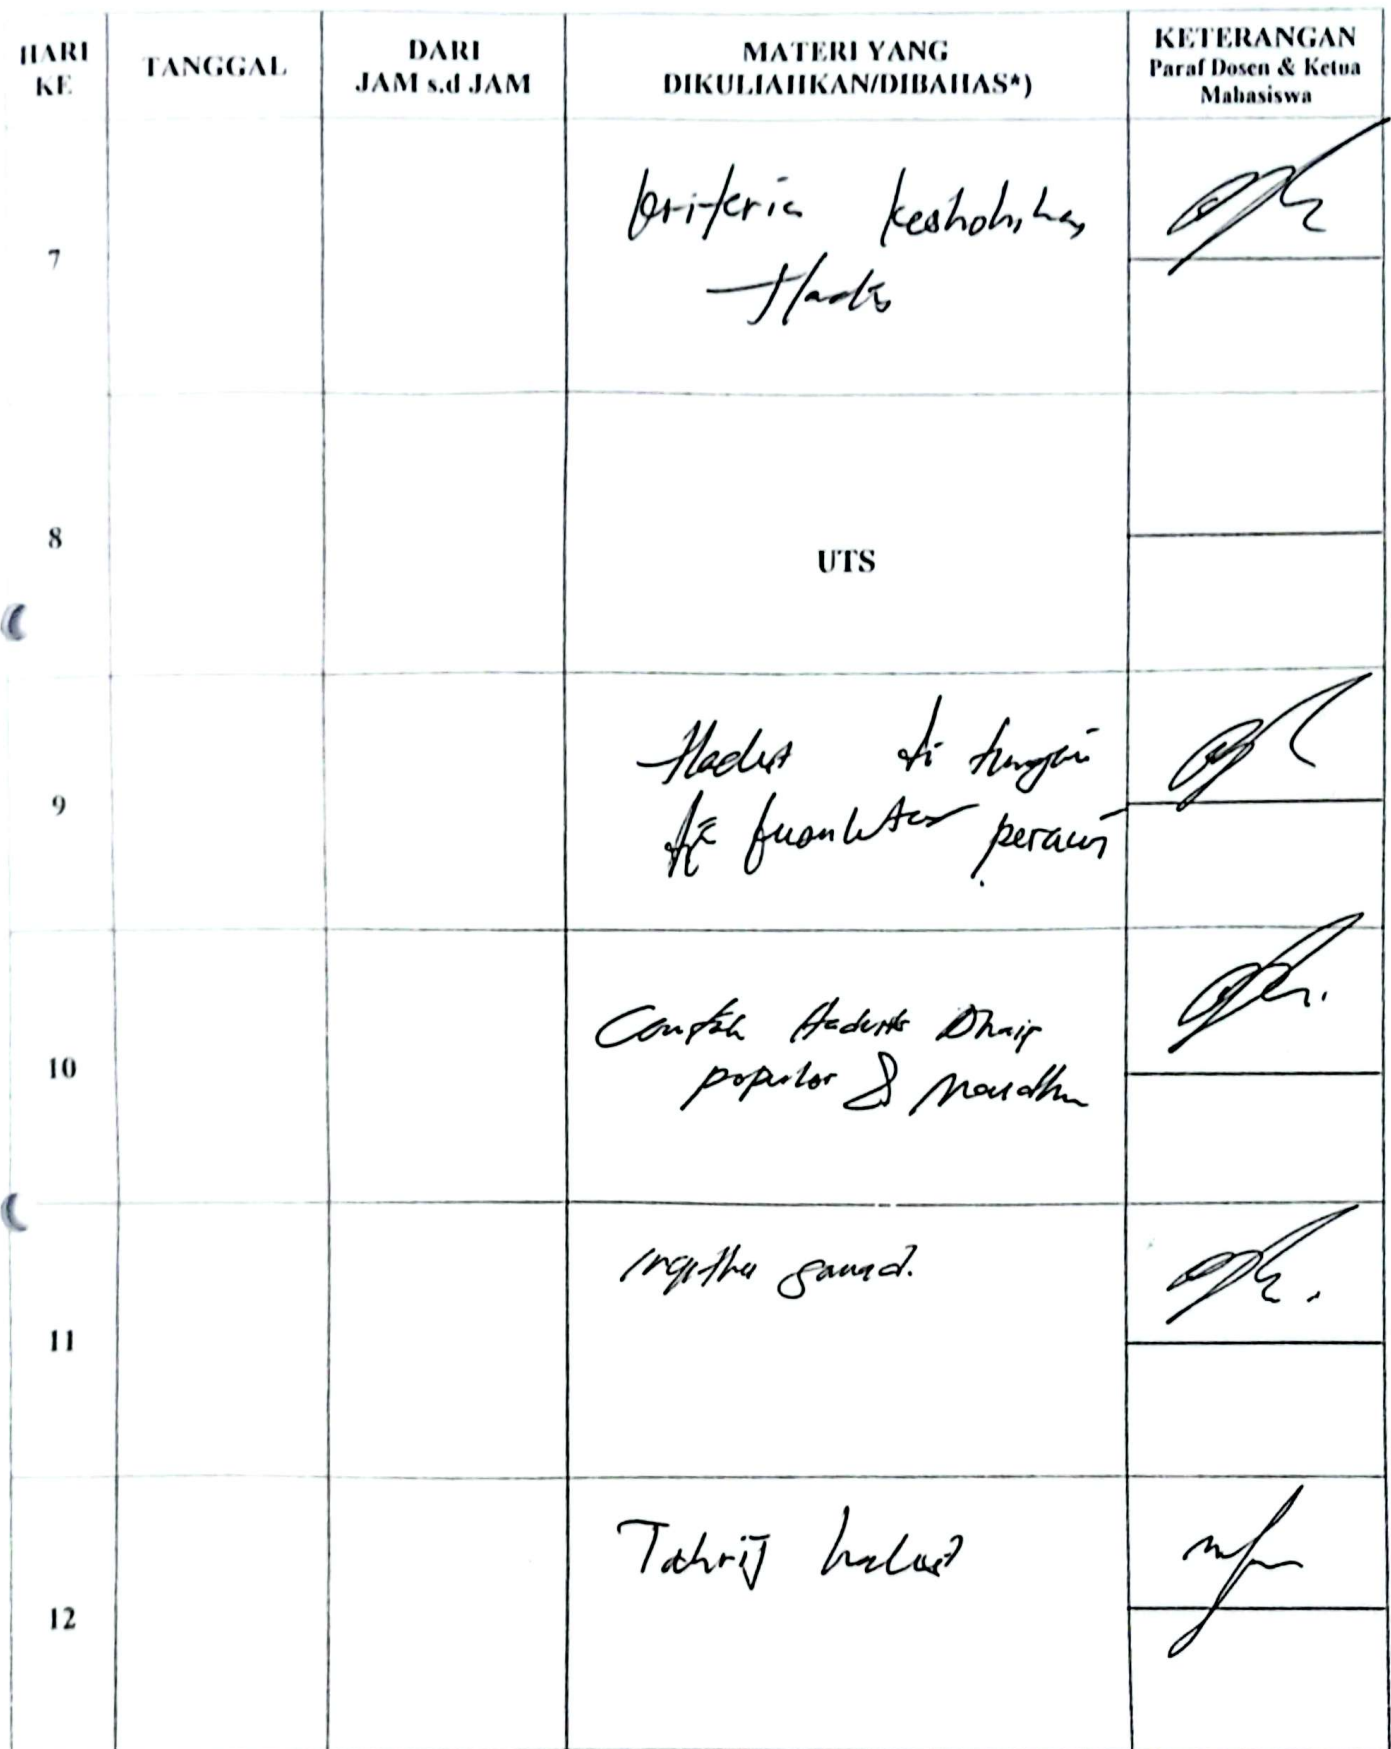 HARI KE
TANGGAL
DARI
JAM s.d JAM
MATERI YANG
DIKULIAHKAN/DIBAHAS*)
KETERANGAN
Paraf Dosen & Ketua
Mahasiswa
7
kriteria
Hadis
8
UTS
9
Hadist di
perawi
10
Contoh Hadits Dhaif
populer &
11
sanad.
12
Tahrij hadist